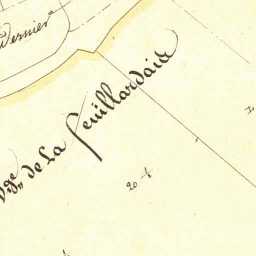 Vernier
Vge de La feuillardais
20 f